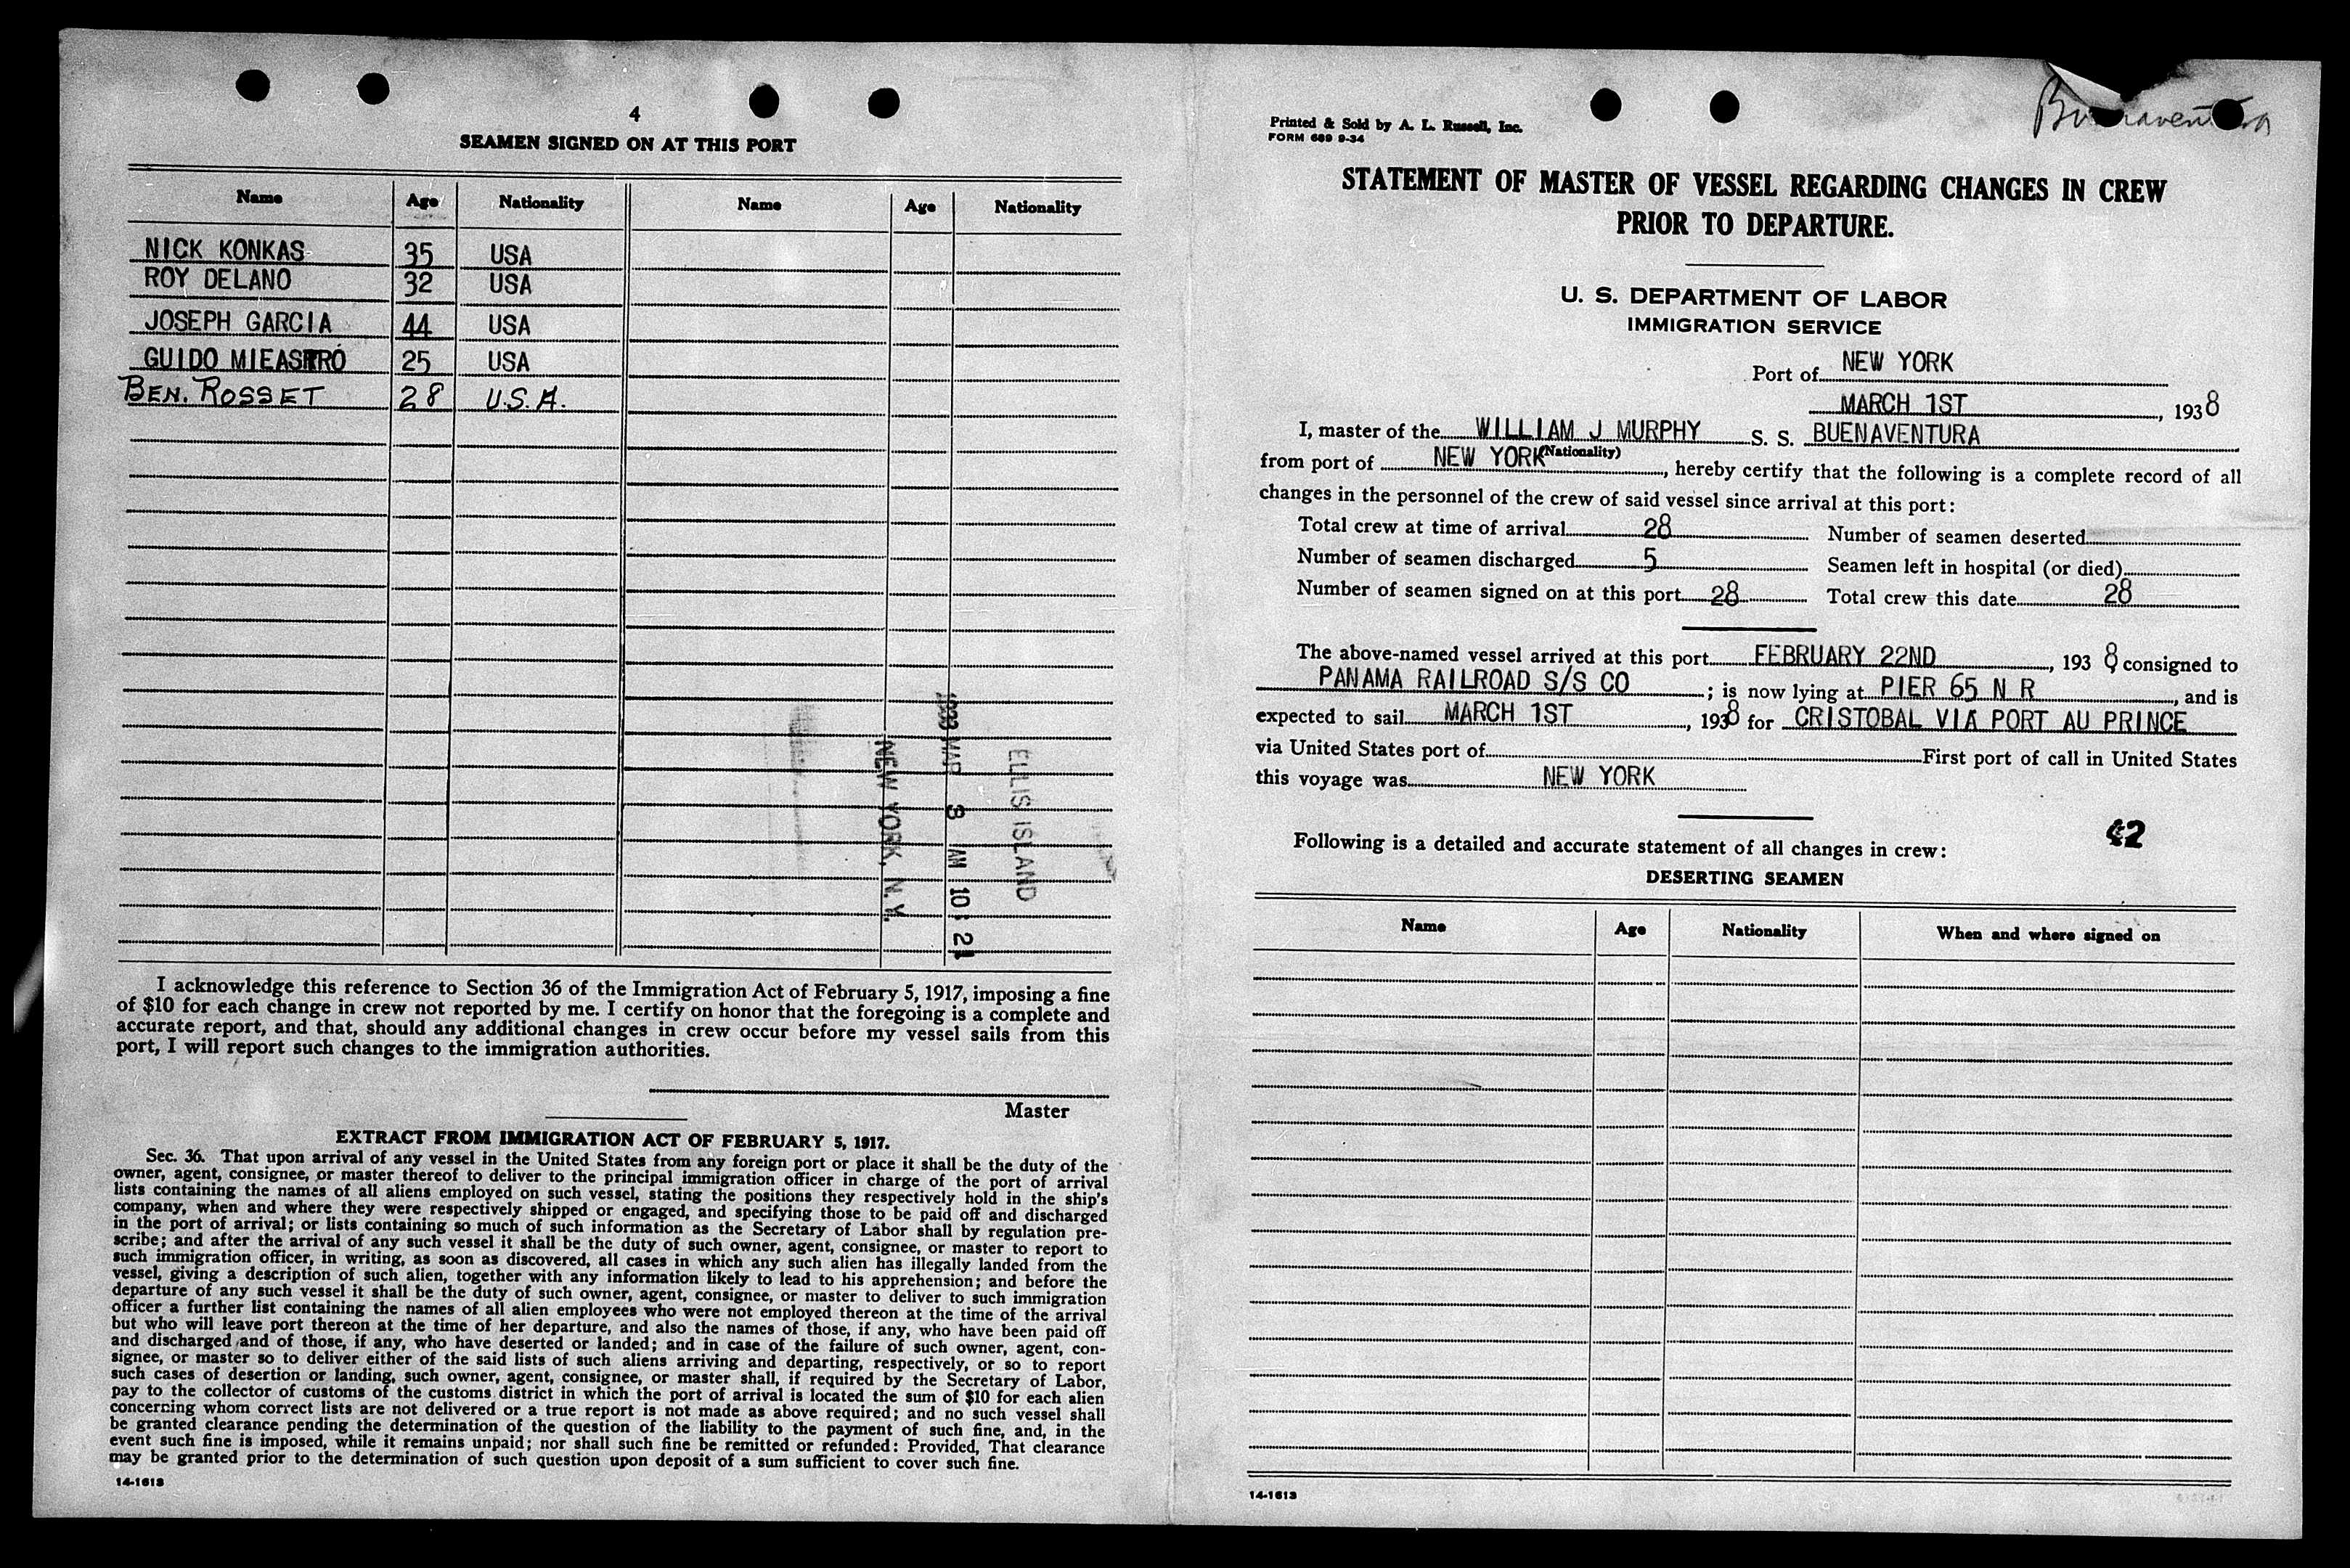 4
SEAMEN SIGNED ON AT THIS PORT
Name Age Nationality Name Age Nationality
NICK KONKAS 35 USA
ROY DELANO 32 USA
JOSEPH GARCIA 44 USA
GUIDO 25 USA
BEN. ROSSET 28 U.S.A.
ELLIS ISLAND
MAR 8 AM 10 21
NEW YORK, N.Y.
I acknowledge this reference to Section 36 of the Immigration Act of February 5, 1917, imposing a fine
of $10 for each change in crew not reported by me. I certify on honor that the foregoing is a complete and
accurate report, and that, should any additional changes in crew occur before my vessel sails from this
port, I will report such changes to the immigration authorities.
Master
EXTRACT FROM IMMIGRATION ACT OF FEBRUARY 5, 1917.
Sec. 36. That upon arrival of any vessel in the United States from any foreign port or place it shall be the duty of the
owner, agent, consignee, or master thereof to deliver to the principal immigration officer in charge of the port of arrival
lists containing the names of all aliens employed on such vessel, stating the positions they respectively hold in the ship's
company, when and where they were respectively shipped or engaged, and specifying those to be paid off and discharged
in the port of arrival; or lists containing so much of such information as the Secretary of Labor shall by regulation pre-
scribe; and after the arrival of any such vessel it shall be the duty of such owner, agent, consignee, or master to report to
such immigration officer, in writing, as soon as discovered, all cases in which any such alien has illegally landed from the
vessel, giving a description of such alien, together with any information likely to lead to his apprehension; and before the
departure of any such vessel it shall be the duty of such owner, agent, consignee, or master to deliver to such immigration
officer a further list containing the names of all alien employees who were not employed thereon at the time of the arrival
but who will leave port thereon at the time of her departure, and also the names of those, if any, who have been paid off
and discharged and of those, if any, who have deserted or landed; and in case of the failure of such owner, agent, con-
signee, or master so to deliver either of the said lists of such aliens arriving and departing, respectively, or so to report
such cases of desertion or landing, such owner, agent, consignee, or master shall, if required by the Secretary of Labor,
pay to the collector of customs of the customs district in which the port of arrival is located the sum of $10 for each alien
concerning whom correct lists are not delivered or a true report is not made as above required; and no such vessel shall
be granted clearance pending the determination of the question of the liability to the payment of such fine, and, in the
event such fine is imposed, while it remains unpaid; nor shall such fine be remitted or refunded: Provided, That clearance
may be granted prior to the determination of such question upon deposit of a sum sufficient to cover such fine.
14-1613
Printed & Sold by A. L. Russell, Inc.
FORM 689 9-34
STATEMENT OF MASTER OF VESSEL REGARDING CHANGES IN CREW
PRIOR TO DEPARTURE.
U. S. DEPARTMENT OF LABOR
IMMIGRATION SERVICE
Port of NEW YORK
MARCH 1ST, 1938
I, master of the WILLIAM J MURPHY S. S. BUENAVENTURA
(Nationality)
from port of NEW YORK, hereby certify that the following is a complete record of all
changes in the personnel of the crew of said vessel since arrival at this port:
Total crew at time of arrival 28 Number of seamen deserted
Number of seamen discharged 5 Seamen left in hospital (or died)
Number of seamen signed on at this port 28 Total crew this date 28
The above-named vessel arrived at this port FEBRUARY 22ND, 1938 consigned to
PANAMA RAILROAD S/S CO; is now lying at PIER 65 N R, and is
expected to sail MARCH 1ST, 1938 for CRISTOBAL VIA PORT AU PRINCE
via United States port of First port of call in United States
this voyage was NEW YORK
42
Following is a detailed and accurate statement of all changes in crew:
DESERTING SEAMEN
Name Age Nationality When and where signed on
14-1613